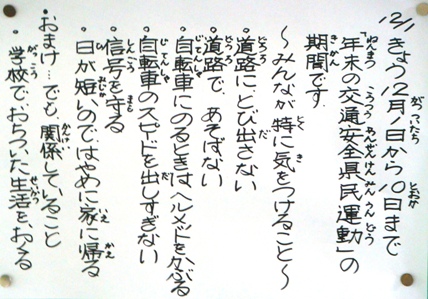 12/1 きょう12月1日から10日まで
「年末の交通安全県民運動」の
期間です。
～みんなが特に気をつけること～
・道路に、とび出さない
・道路で、あそばない
・自転車にのるときは、ヘルメットをかぶる
・自転車のスピードを出しすぎない
・信号を守る
・日が短いので、はやめに家に帰る
おまけ…でも、関係していること
・学校で、おちついた生活を、おくる